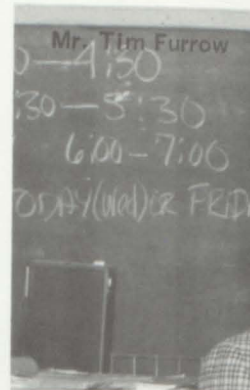 Mr. Tim Furrow
0—4:30
:30—5:30
6:00-7:00
ODAY(Wed)OR FRID